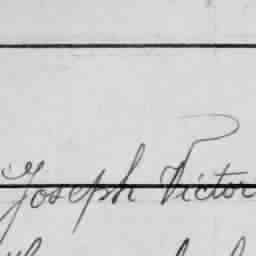 Joseph Victor